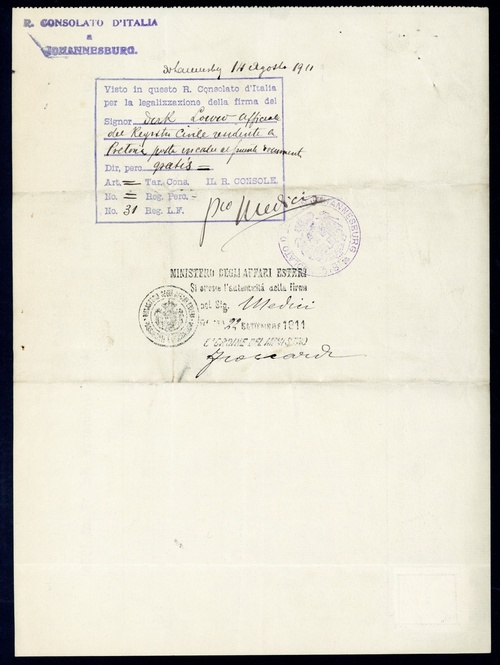 R. CONSOLATO D'ITALIA
a
JOHANNESBURG.
Johannesburg 14 Agosto 1911
Visto in questo R. Consolato d'Italia
per la legalizzazione della firma del
Signor Dirk Louw Officiale
del Registro Civile residente a
Pretoria posta in calce al presente document
Dir. perc. gratis =
Art. = Tar. Cons. IL R. CONSOLE.
No. = Reg. Perc. -
No. 31 Reg. L.F. pro Medici
JOHANNESBURG
MINISTERO DEGLI AFFARI ESTERI
Si attesta l'autenticità della firma
del Sig. Medici
22 SETTEMBRE 1911
D'ORDINE DEL MINISTRO